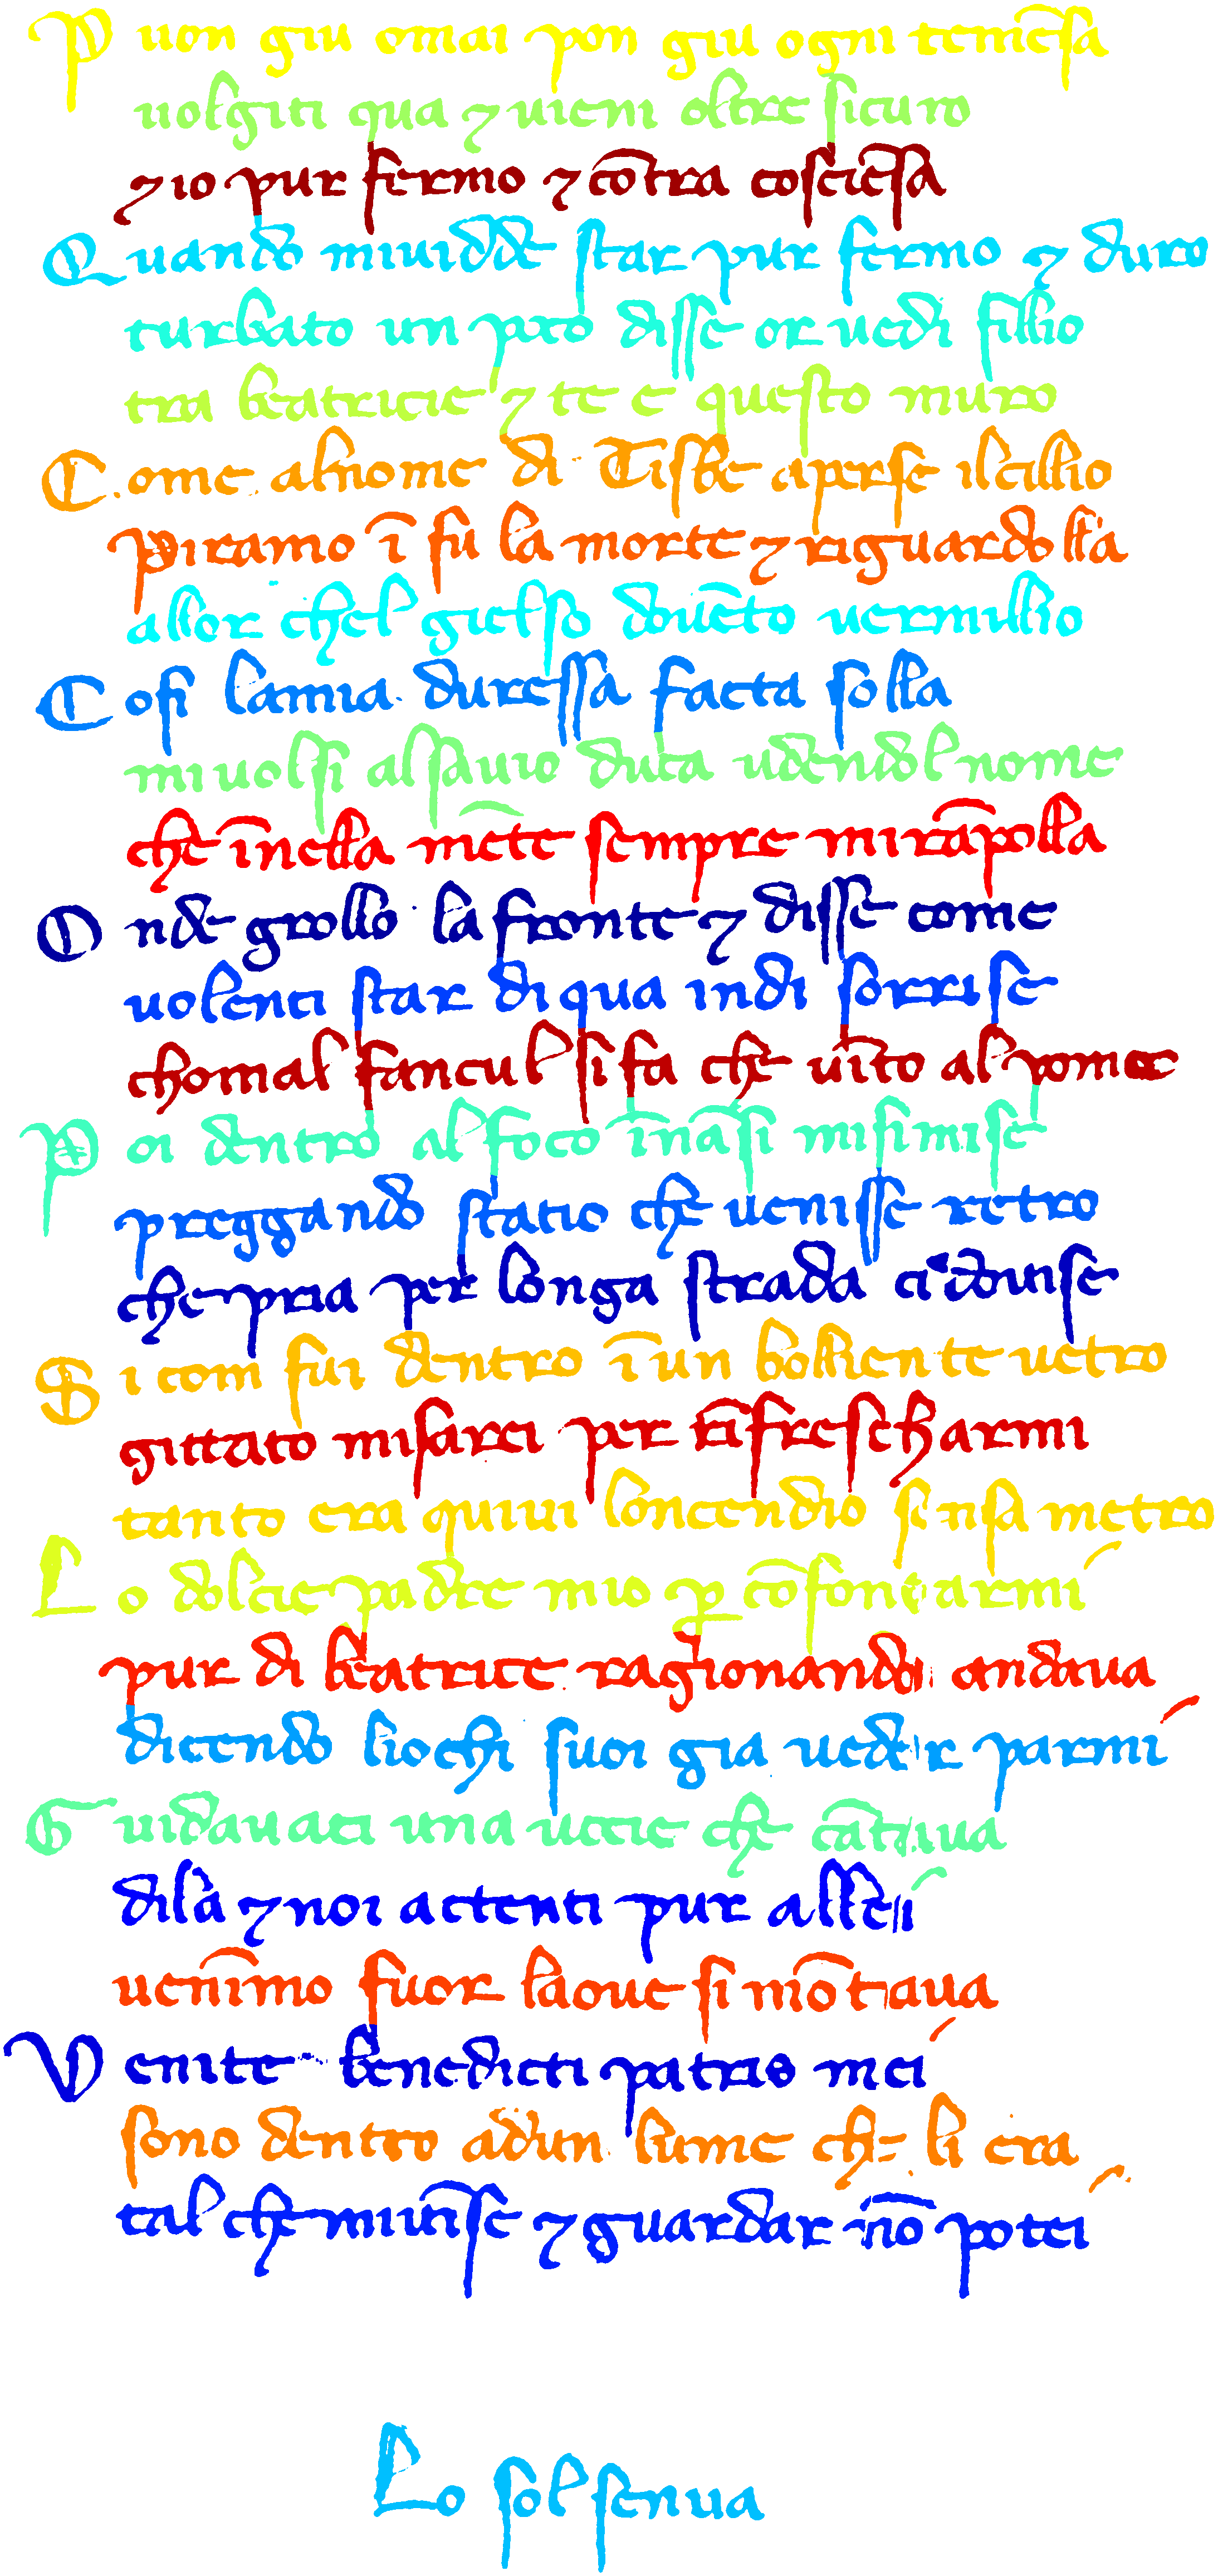 P uon giu omai pon giu ogni temẽsa
uolgiti qua ⁊ uieni oltre sicuro
⁊ io pur fermo ⁊ cõtra cosciẽsa
Q uando miuidde star pur fermo ⁊ duro
turbato un pco disse or uedi fillio
tra beatricie ⁊ te e questo muro
C ome alnome di Tisbe aperse ilcillio
Piramo ĩ su la morte ⁊ riguardolla
allor chel gielso douẽto uermillio
C osi lamia duressa facta solla
miuolsi alsauio duca udendol nome
che ĩnella mẽte sempre mirãpolla
O nde grollo la fronte ⁊ disse come
uolenci star di qua indi sorrise
chomal fanciul si fa che uĩto al pome
P oi dentro al foco ĩnãsi misimise
preggando statio che uenisse retro
che pria per longa strada ci douise
S i com fui dentro ĩ un bolliente uetro
gittato misarei per rĩfrescharmi
tanto era quiui loncendio sensa metro
L o dolcie padre mio ꝑ cõfortarmi
pur di beatrice ragionando andaua
dicendo liochi suoi gia ueder parmi
G uidauaci una uccie che cãtaua
dila ⁊ noi actenti pur allei
uenĩmo fuor laoue si mõtaua
V enite benedicti patris mei
sono dentro adun lume che li era
tal che miuĩse ⁊ guardar nõ potei
Lo sol senua